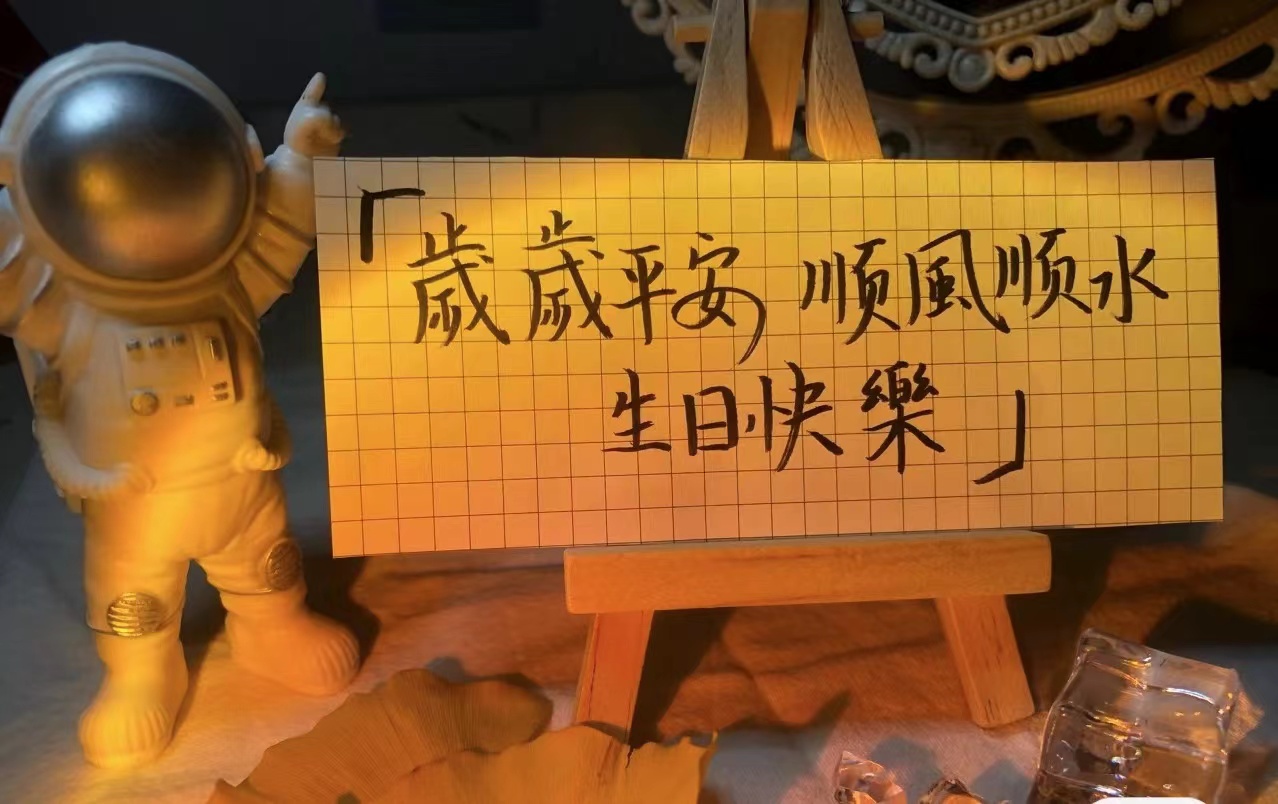 「歲歲平安 顺風顺水
生日快樂」